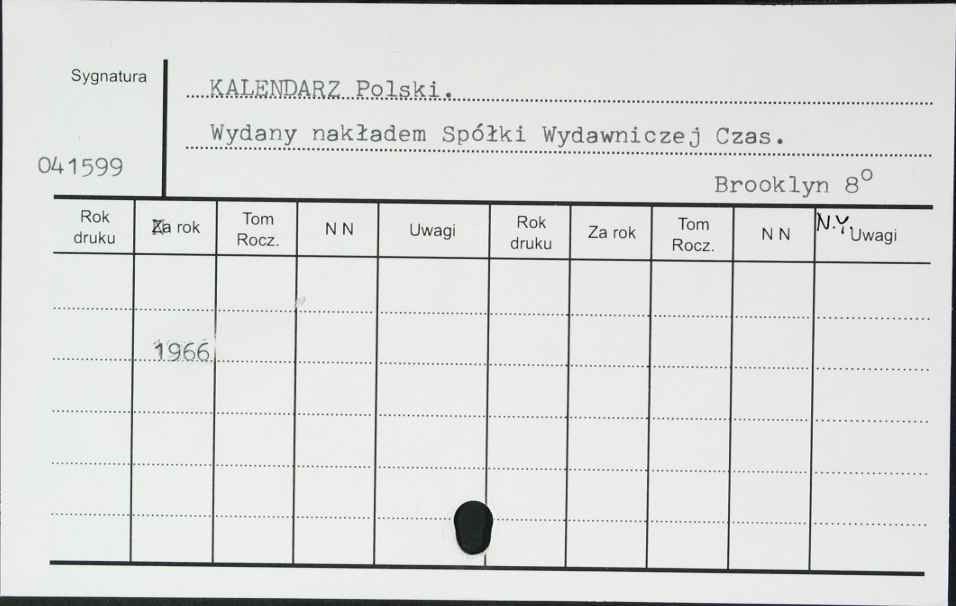 Sygnatura
KALENDARZ Polski.
Wydany nakładem Spółki Wydawniczej Czas.
041599
Brooklyn 8°
N.Y.
Rok druku Za rok Tom Rocz. N N Uwagi Rok druku Za rok Tom Rocz. N N Uwagi
1966